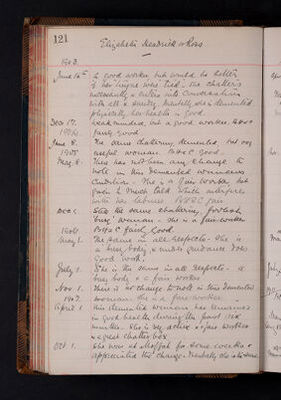 121
Elizabeth Kendrick or Ross
1903.
June 14th A good worker but would be better
if her tongue was tied. She chatters
incessantly & enters into conversation
with all & sundry. Mentally she is demented
physically her health is good.
Dec 17. Weak minded, but a good worker. B H & C
1904. fairly good
June 8. The same chattering, demented, but very
1905 useful woman. B H & C good.
May 8. There has not been any change to
note in this demented womans
Condition. She is a fair worker but
given to much talk which interferes
with her labours. B H & C fair
Dec 1. Still the same chattering foolish
busy woman. She is a fair worker
1906 B H & C fairly good.
May 1. The same in all respects. She is
a busy body, & under guidance does
Good work.
July 1. She is the same in all respects. A
busy body & a fair worker
Nov 1. There is no change to note in this demented
1907. woman. She is a fair worker.
April 1 This demented woman has remained
in good health during the past six
months. She is very active & a fair worker
& a great chatter box
Oct 1. She went to Moffat for some weeks &
appreciated the change. Mentally she is the same.